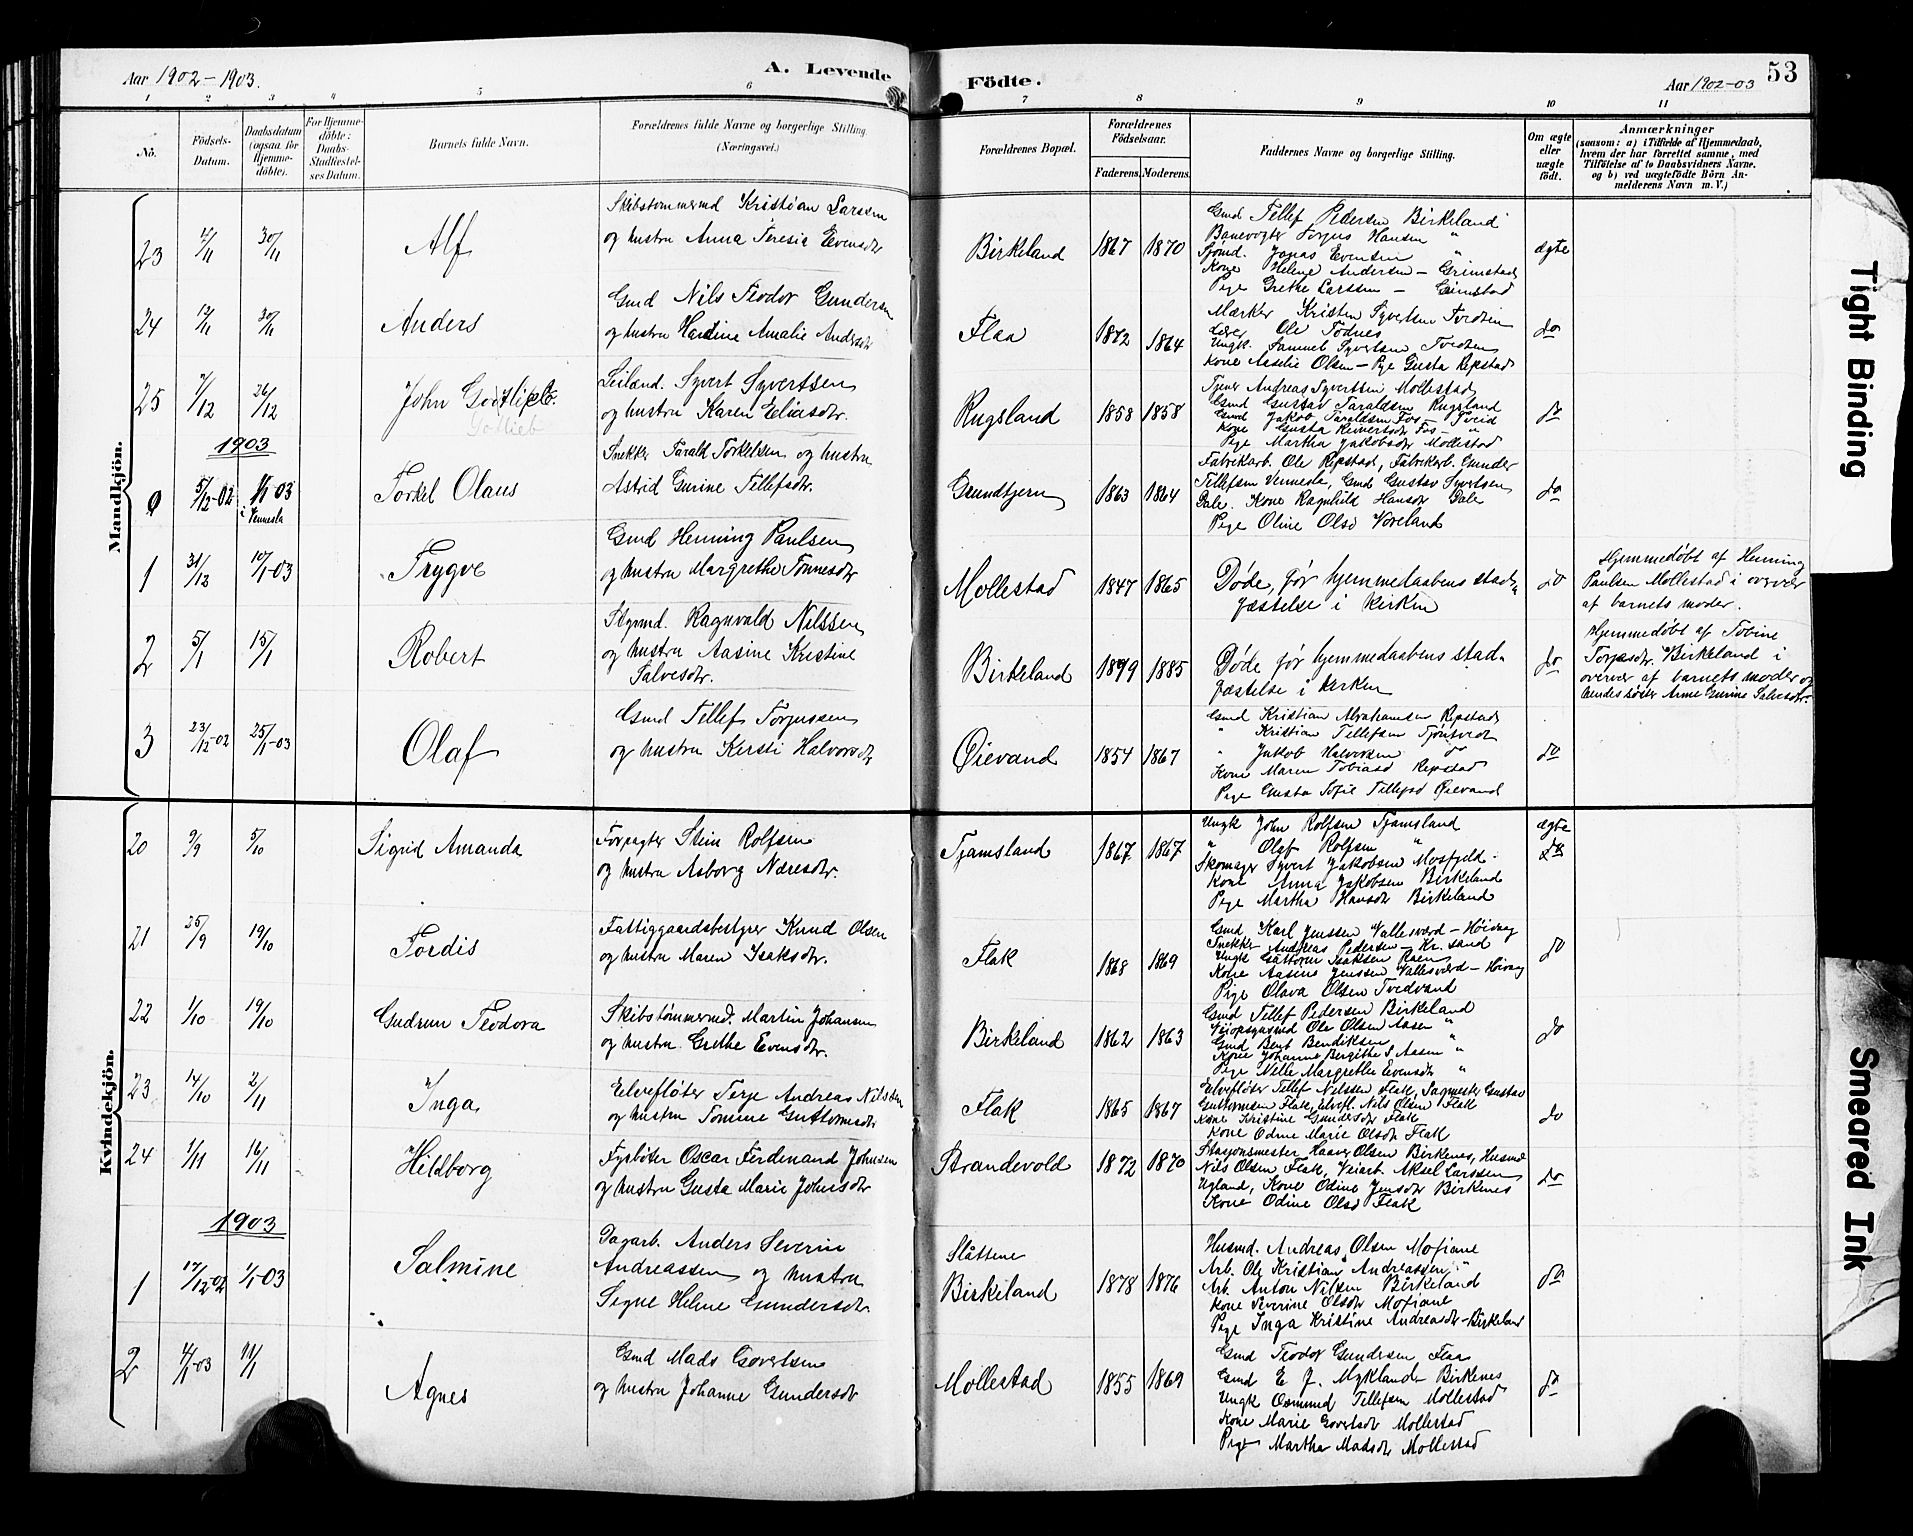 Aar 1902-1903.
A. Levende
Födte.
Aar 1902-03
53
1 2 3 4 5 6 7 8 9 10 11
No.
Födsels-Datum.
Daabsdatum (ogsaa for Hjemmedöbte).
For Hjemmedöbte: Daabs-Stadfæstelses Datum.
Barnets fulde Navn.
Forældrenes fulde Navne og borgerlige Stilling. (Næringsvei.)
Forældrenes Bopæl.
Forældrenes Födselsaar.
Faderens. Moderens.
Faddernes Navne og borgerlige Stilling.
Om ægte eller uægte födt.
Anmærkninger
(saasom: a) i Tilfælde af Hjemmedaab,
hvem der har forrettet samme, med
Tilföielse af to Daabsvidners Navne.
og b) ved uægtefödte Börn Anmelderens Navn m. V.)
Mandkjön.
23 30/11 Alf
Skibstømmermd Kristian Larssen
og hustru Anna Teresia Evensdtr
Birkeland 1867 1870
Gmd Tellef Pedersen Birkeland
Banevogter Torjus Hansen "
Sjømd. Jonas Evensen "
Kone Helene Andersen - Grimstad
Pige Grethe Larssen - Grimstad
ægte
24 12/11 30/11 Anders
Gmd Nils Teodor Gundersen
og hustru Hardine Amalie Andersdtr
Flaa 1872 1864
Mærker Kristen Syvertsen Tveiten
Ole Todnes
Ungk. Samuel Syvertsen Tveiten
Kone Aaselie Olsen - Pige Gusta Repstad
do
25 7/12 26/12 John Gottlieb
Gotlieb
Leiland. Syvert Syvertsen
og hustru Karen Eliasdtr.
Rugsland 1858 1858
Tjener Andreas Syvertsen Mollestad
Gmd Gustav Taraldsen Rugsland
Gmd Jakob Taraldsen Fos - Tveid
Kone Gusta Reinertsdtr Fos - "
Pige Martha Jakobsdtr Mollestad
do
1903
0 5/12-02 1/1 03 i Vennesla Torkel Olaus
Snekker Tarald Torkelsen og hustru
Astrid Gurine Tellefsdtr.
Grundtjern 1863 1864
Fabrikarb. Ole Repstad, Fabrikarb. Gunder
Tellefsen Vennesla, Gmd Gustav Syvertsen
Dale. Kone Ragnhild Hansdtr Dale
Pige Oline Olsd Voreland
do
1 31/12 10/1-03 Trygve
Gmd Henning Paulsen
og hustru Margrethe Tønnesdtr
Mollestad 1847 1865
Døde, før hjemmedaabens stad-
fæstelse i kirken
do
Hjemmedøbt af Henning
Paulsen Mollestad i overvær
af barnets moder.
2 5/1 15/1 Robert
Ragnvald Nilssen
og hustru Aasine Kristine
Salvesdtr.
Birkeland 1879 1885
Døde før hjemmedaabens stad-
fæstelse i kirken
do
Hjemmedøbt af Tobine
Torjesdtr. Birkeland i
overvær af barnets moder og
hendes søster Anne Gurine Salvesdtr.
3 23/12-02 25/1-03 Olaf
Gmd Tellef Torjussen
og hustru Kersti Halvorsdtr
Øievand 1854 1867
Gmd Kristian Abrahamsen Repstad
" Kristian Tellefsen Tjomtvedt
" Jakob Halvorsen do
Kone Maren Tobiasd Repstad
Pige Gusta Sofie Tellefsd Øievand
do
Kvindekjön.
20 9/9 5/10 Sigrid Amanda
Forpagter Stein Rolfsen
og hustru Asborg Næresdtr.
Tjamsland 1867 1867
Ungk John Rolfsen Tjamsland
" Olaf Rolfsen "
Skomager Syvert Jakobsen Mosfjeld
Kone Anna Jakobsen Birkeland
Pige Martha Hansdtr Birkeland
ægte
do
21 25/9 19/10 Tordis
Fattiggaardsbestyrer Knud Olsen
og hustru Maren Isaksdtr.
Flak 1868 1869
Gmd Karl Jenssen Vallesværd - Høivag
Snekker Andreas Pedersen - Kr. sand
Ungk Guttorm Isaksen Roen
Kone Aasine Jenssen Vallesværd - Høivag
Pige Olava Olsen Tvedvand
do
22 1/10 19/10 Gudrun Teodora
Skibstømmermd. Martin Johansen
og hustru Grethe Evensdtr.
Birkeland 1862 1863
Gmd Tellef Pedersen Birkeland
Veiopsynsmd Ole Olsen Aasen "
Gmd Bent Bendiksen "
Kone Johanne Bergitte S. Aasen "
Pige Nelle Margrethe Evensdtr "
do
23 14/10 2/11 Inga
Elvefløter Terje Andreas Nilssen
og hustru Tomine Guttormsdtr
Flak 1865 1867
Elvefløter Tellef Nilssen Flak, Sagmester Gustav
Guttormsen Flak, Elvefl. Nils Olsen Flak
Kone Kristine Gundersdtr Flak
Kone Odine Marie Olsdtr Flak
do
24 1/11 16/11 Hildborg
Fyrbøter Oscar Ferdinand Johnsen
og hustru Gusta Marie Johnsdtr
Strandevold 1872 1870
Stasjonsmester Haaver Olsen Birkenes, Husmd
Nils Olsen Flak, Veiarb. Aksel Larssen
Ugland, Kone Odine Jensdtr Birkenes
Kone Odine Olsd Flak
do
1903
1 17/12-02 1/1-03 Salmine
Dagarb. Anders Severin
Andreassen og hustru
Signe Helene Gundersdtr.
Slåttene
Birkeland 1878 1876
Husmd. Andreas Olsen Mofiane
Arb. Ole Kristian Andreassen "
Arb. Anton Nilsen Birkeland
Kone Severine Olsdtr Mofiane
Pige Inga Kristine Andreasdtr - Birkeland
do
2 4/1-03 11/1 Agnes
Gmd Mads Govertsen
og hustru Johanne Gundersdtr
Mollestad 1855 1869
Gmd Teodor Gundersen Flaa
Gmd E J. Mykland Birkenes
Ungk Osmund Tellefsen Mollestad
Kone Marie Govertsdtr Mollestad
Pige Martha Madsdtr Mollestad
do
Tight Binding
Smeared Ink